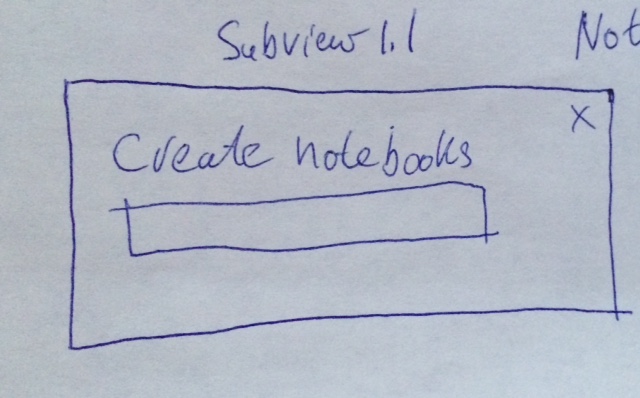 Subview 1.1
Not
x
Create notebooks